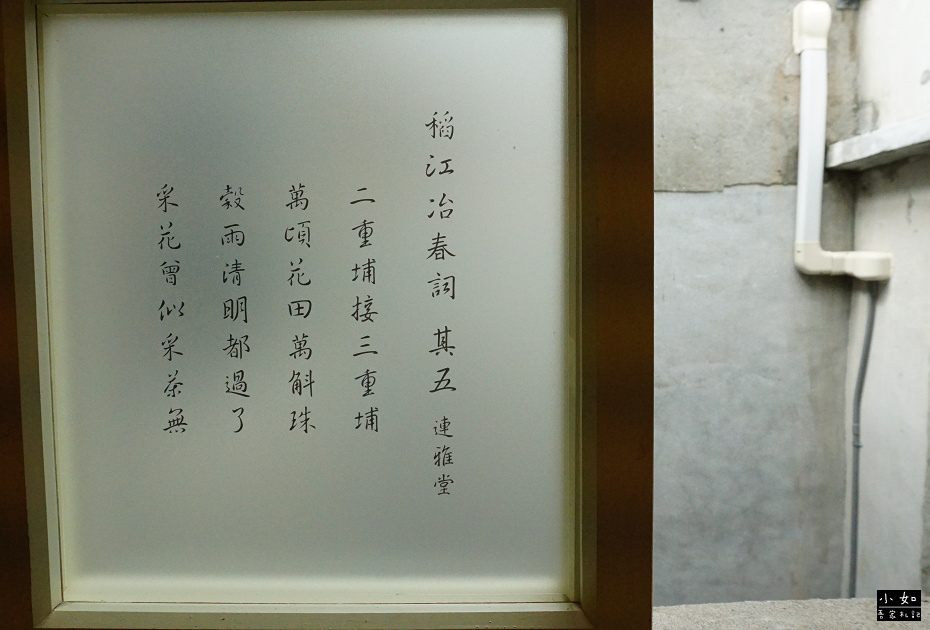 稻江冶春詞 其五 連雅堂
二重埔接三重埔
萬頃花田萬斛珠
穀雨清明都過了
采花曾似采茶無
小如
吾家札記